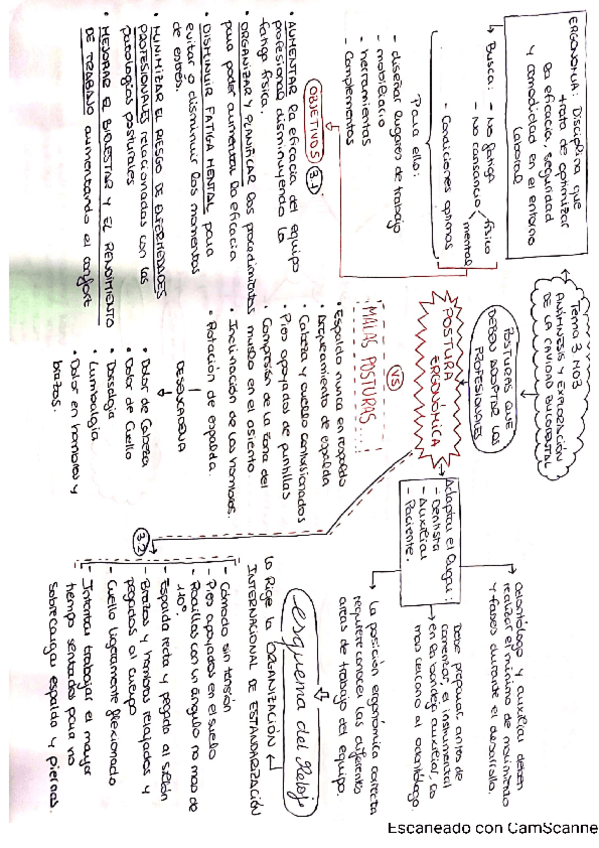 Tema 3 M03
ANAMNESIS Y EXPLORACIÓN
DE LA CAVIDAD BUCODENTAL
ERGONOMÍA: Disciplina que
trata de optimizar
la eficacia, seguridad
y comodidad en el entorno
laboral
Busca: - No fatiga
- No cansancio
físico
mental
- Condiciones optimas
Para ello:
- diseñar lugares de trabajo
- mobiliario
- herramientas
- Complementos
OBJETIVOS 3.1
• AUMENTAR la eficacia del equipo
profesional disminuyendo la
fatiga física.
• ORGANIZAR Y PLANIFICAR los procedimientos
para poder aumentar la eficacia
• DISMINUIR FATIGA MENTAL para
evitar o disminuir los momentos
de estrés.
• MINIMIZAR EL RIESGO DE ENFERMEDADES
PROFESIONALES relacionadas con las
patologías posturales
• MEJORAR EL BIENESTAR Y EL RENDIMIENTO
DE TRABAJO aumentando el confort
POSTURAS QUE
DEBEN ADOPTAR LOS
PROFESIONALES
POSTURA
ERGONOMICA
VS
MALAS POSTURAS...
• Espalda nunca en respaldo
• Arqueamiento de espalda
• Cabeza y cuello contorsionados
• Pies apoyados de puntillas
• Compresión de la zona del
muslo en el asiento.
• Inclinación de los hombros.
• Rotación de espalda.
DESENCADENA
• Dolor de Cabeza
• Dolor de Cuello
• Dorsalgia
• Lumbalgia
• Dolor en hombros y
brazos.
Adaptar el lugar:
- Dentista
- Auxiliar
- Paciente.
Odontólogo y auxiliar deben
realizar el mínimo de movimientos
y fases durante el desarrollo.
Debe preparar, antes de
comenzar, el instrumental
en la bandeja auxiliar, lo
mas cercano al odontólogo.
la posición ergonómica correcta
requiere conocer las diferentes
areas de trabajo del equipo.
esquema del Reloj
lo Rige la ORGANIZACIÓN
INTERNACIONAL DE ESTANDARIZACIÓN
3.2
- Cómodo sin tensión
- Pies apoyados en el suelo
- Rodillas con un ángulo no mas de
110°.
- Espalda recta y pegada al sillón
- Brazos y hombros relajados y
pegados al cuerpo
- Cuello ligeramente flexionado
- Intentar trabajar el mayor
tiempo sentados para no
sobrecargar espalda y piernas.
Escaneado con CamScanne